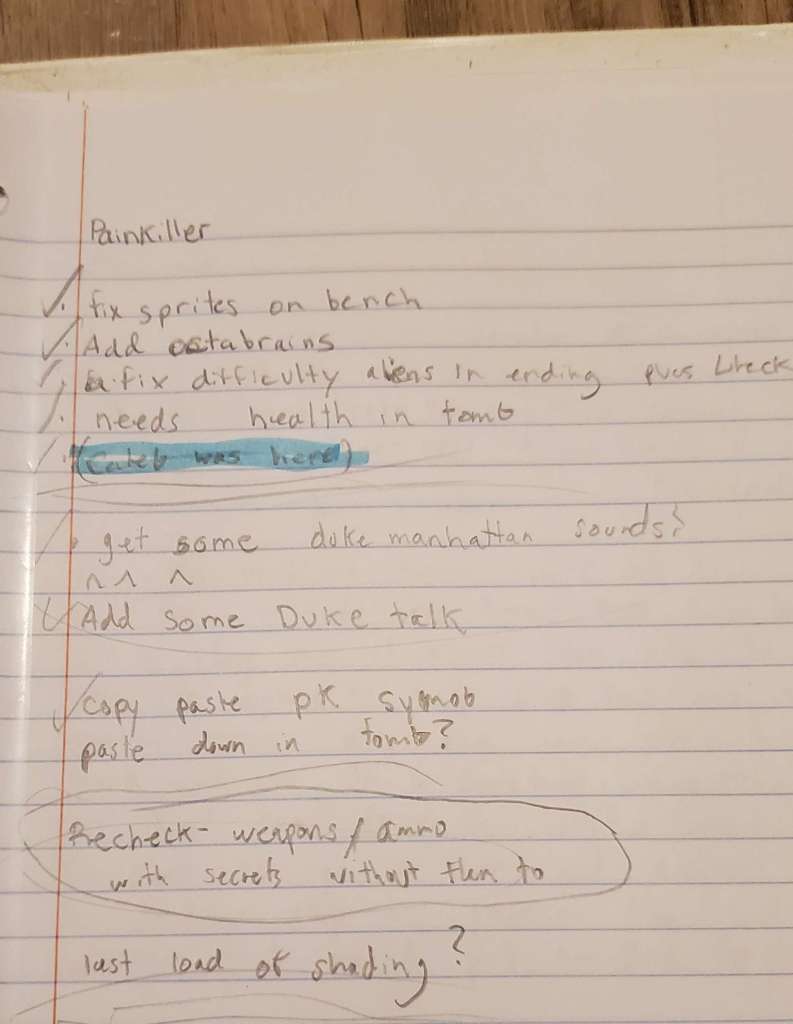 Painkiller
fix sprites on bench
Add octabrains
fix difficulty aliens in ending
needs health in tomb
(Caleb was here)
get some duke manhattan sounds?
^ ^ ^
Add some Duke talk
copy paste pk symob
paste down in tomb?
Recheck - weapons / ammo
with secrets without them to
last load of shading?